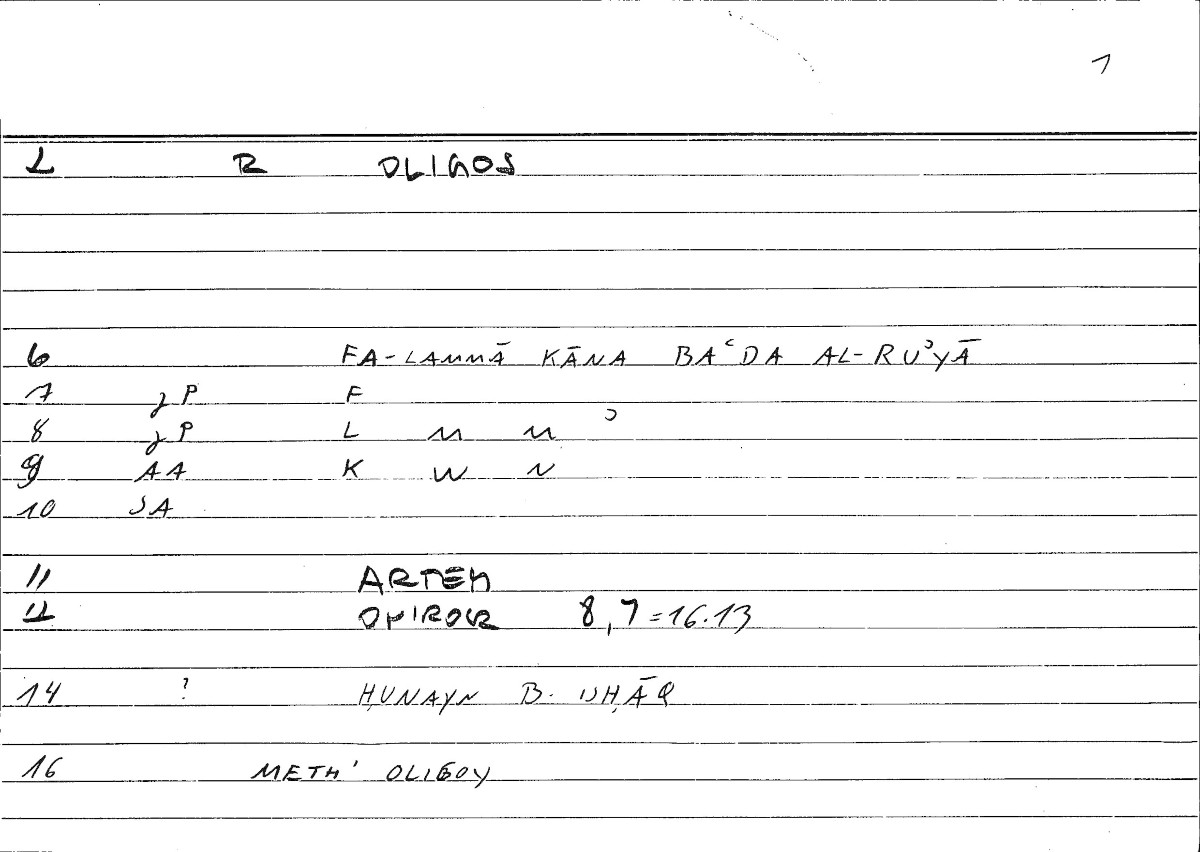 1
1 R OLIGOS
6 FA-LAMMĀ KĀNA BAʿDA AL-RUʾYĀ
7 P F
8 P L M M ʾ
9 AA K W N
10 SA
11 ARTEM
ONIROCR 8,7=16.13
14 ? ḤUNAYN B. ISḤĀQ
16 METH' OLIGOY